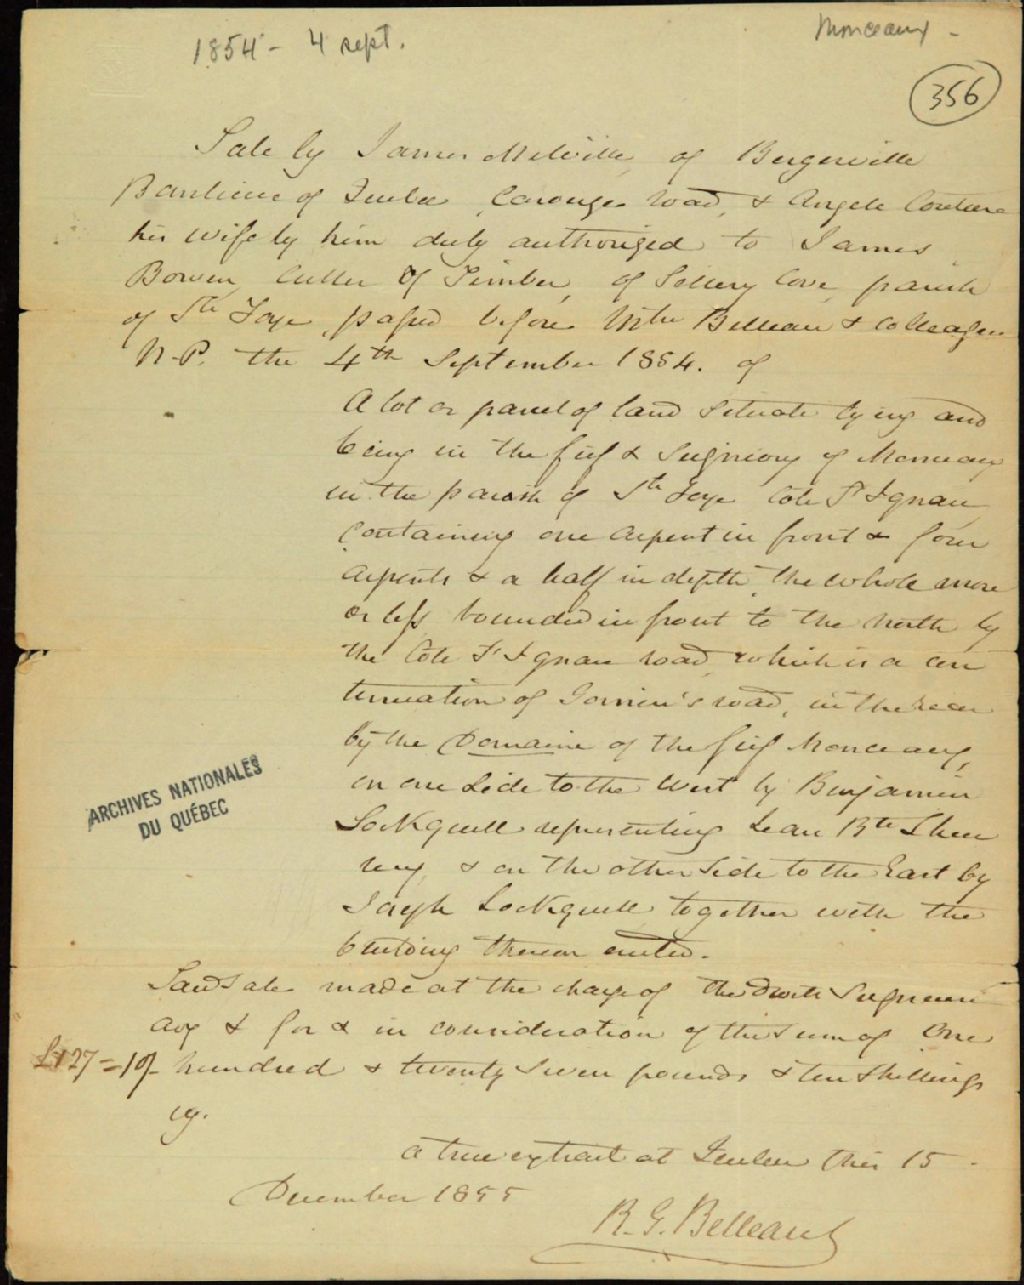 1854 - 4 sept.
Monceaux -
356
Sale by James Melville of Bergerville
Banlieue of Quebec Carouge road, & Angele Couture
his wife by him duly authorized to James
Bowen Culler of Timber, of Sillery Cove, parish
of Ste Foye passed before Mtre Belleau & colleague
N.P. the 4th September 1854. of
A lot or parcel of land situate lying and
being in the fief & Seigniory of Monceaux
in the parish of Ste Foye Cote St Ignace
containing one arpent in front & four
arpents & a half in depth, the whole more
or less bounded in front to the north by
the Cote St Ignace road, which is a con
tinuation of Gomin's road, in the rear
by the Domaine of the fief Monceaux,
on one side to the West by Benjamin
Lockquell representing Jean Bte
& on the other side to the East by
Joseph Lockquell together with the
building thereon erected.
Said sale made at the charge of the droits Seigneuri
aux & for & in consideration of the sum of One
£127=10/- hundred & twenty seven pounds & ten shillings
cy.
a true extract at Quebec this 15
December 1855
R. G. Belleau
ARCHIVES NATIONALES
DU QUÉBEC